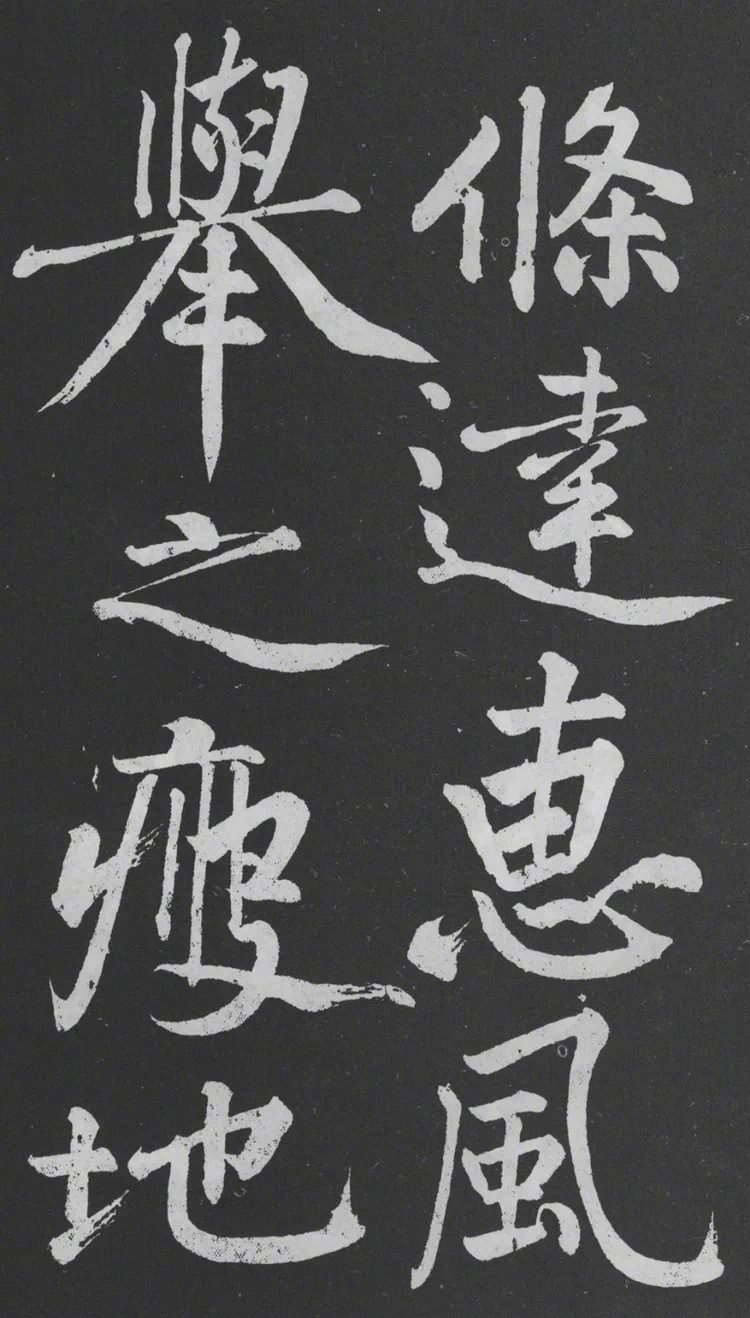 條達惠風
舉之瘦地